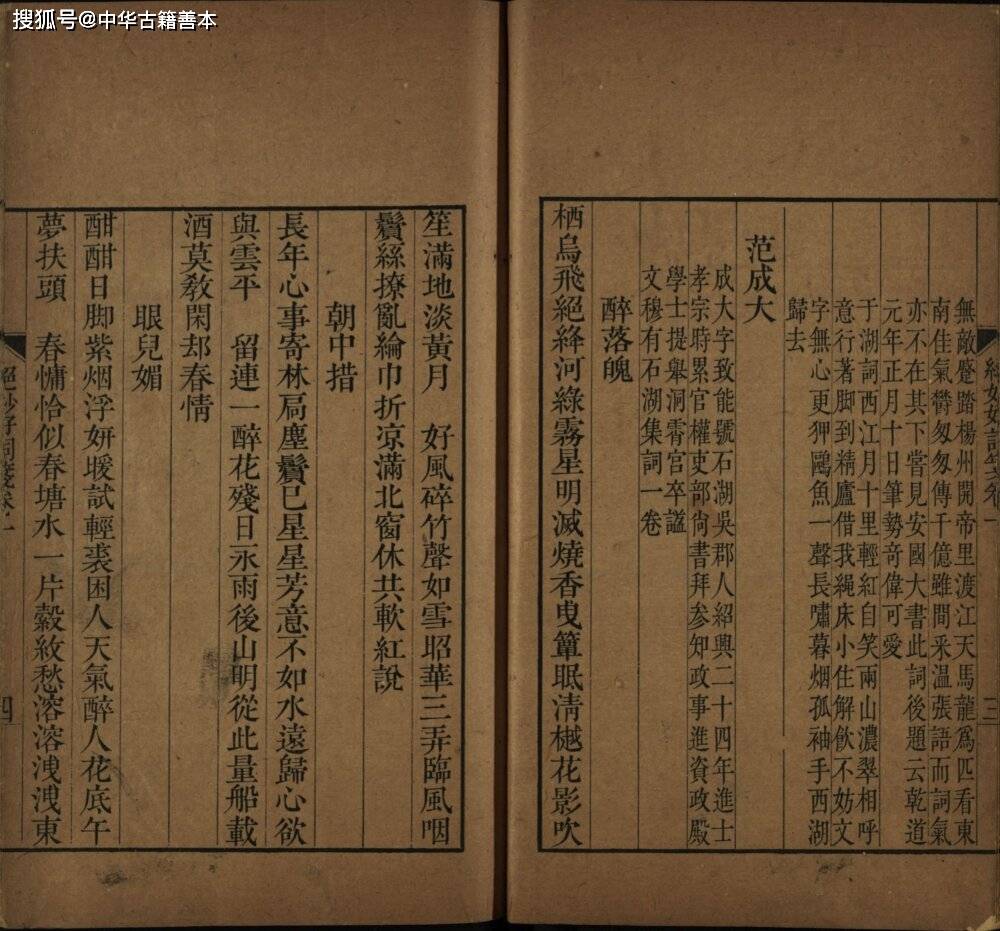 搜狐号@中华古籍善本
絕妙好詞箋卷一
三
無敵蹙踏楊州開帝里渡江天馬龍爲匹看東
南佳氣欝匆匆傳千億雖間采溫張語而詞氣
亦不在其下嘗見安國大書此詞後題云乾道
元年正月十日筆勢奇偉可愛
于湖詞西江月十里輕紅自笑兩山濃翠相呼
意行著脚到精廬借我繩床小住解飲不妨文
字無心更狎鷗魚一聲長嘯暮烟孤袖手西湖
歸去
范成大
成大字致能號石湖吳郡人紹興二十四年進士
孝宗時累官權吏部尙書拜參知政事進資政殿
學士提舉洞霄宮卒諡
文穆有石湖集詞一卷
醉落魄
栖烏飛絕絳河綠霧星明滅燒香曳簟眠淸樾花影吹
笙滿地淡黃月　好風碎竹聲如雪昭華三弄臨風咽
鬢絲撩亂綸巾折凉滿北窗休共軟紅說
朝中措
長年心事寄林扃塵鬢已星星芳意不如水遠歸心欲
與雲平　留連一醉花殘日永雨後山明從此量船載
酒莫敎閑却春情
眼兒媚
酣酣日脚紫烟浮妍暖試輕裘困人天氣醉人花底午
夢扶頭　春慵恰似春塘水一片縠紋愁溶溶洩洩東
絕妙好詞箋卷一
四